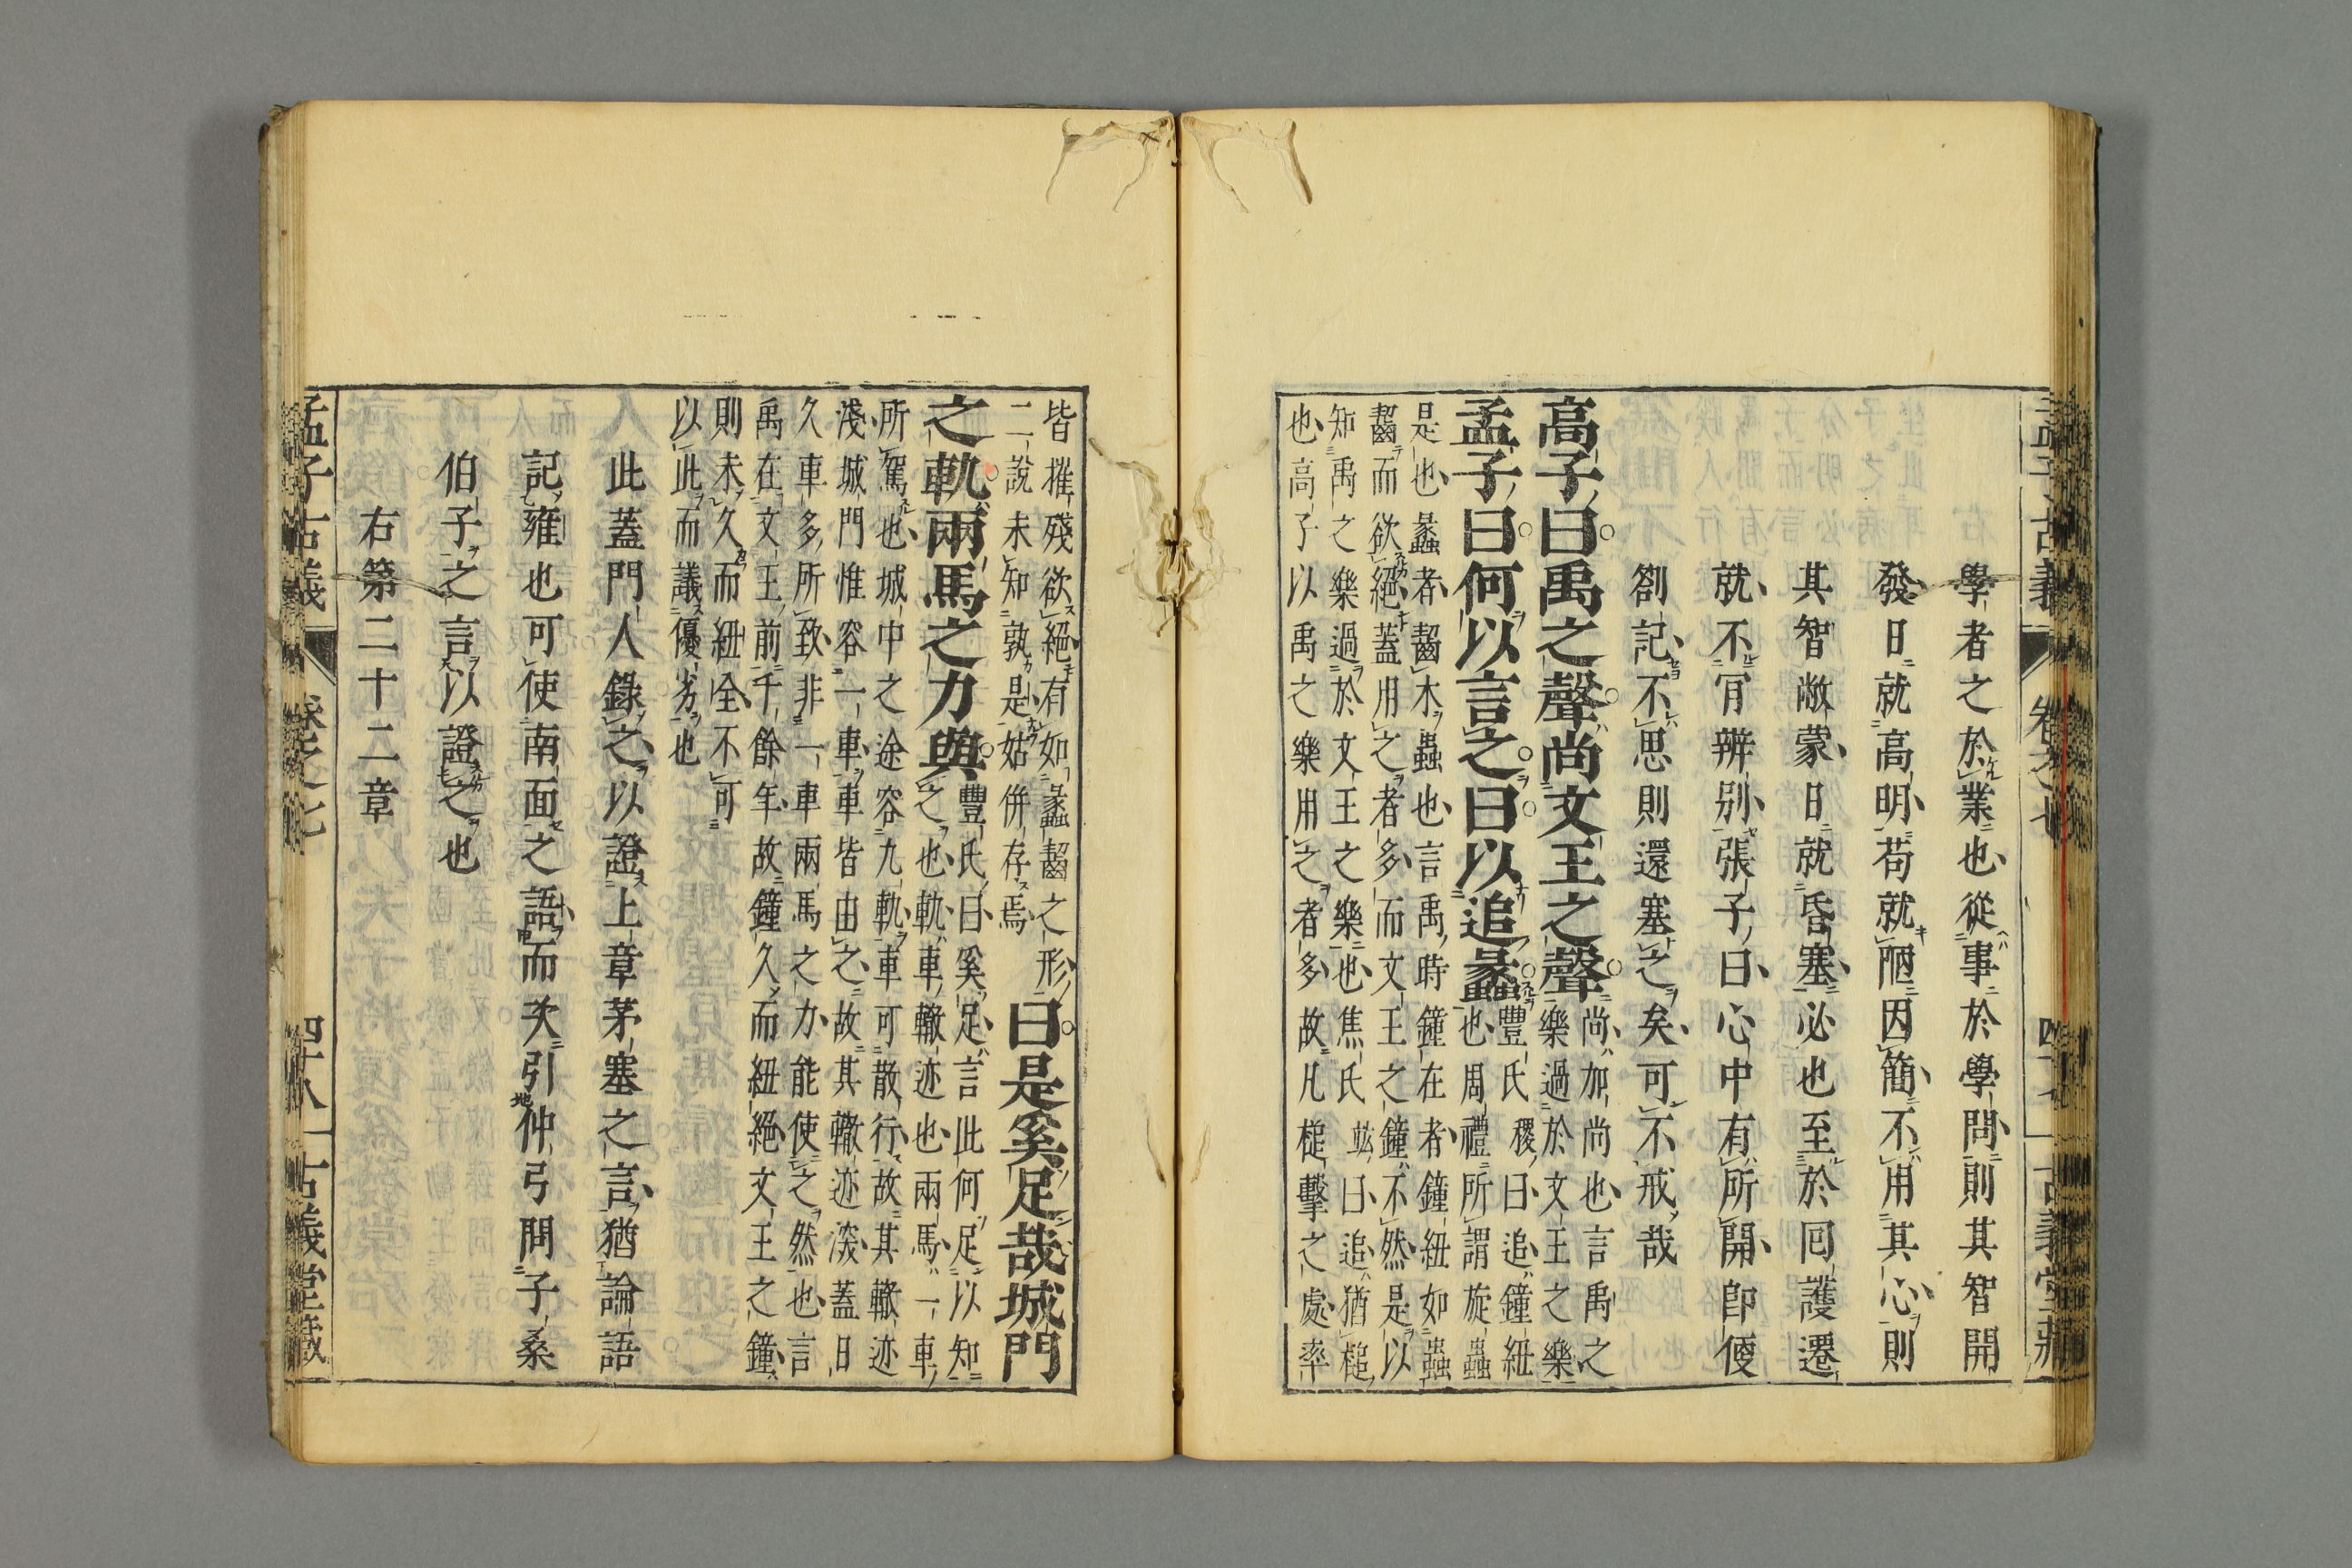 學者之於業也從事於學問則其智開
發日就高明苟就陋因簡不用其心則
其智敝蒙日就昏塞必也至於囘護遷
就不肯辨別張子曰心中有所開卽便
劄記不思則還塞之矣可不戒哉
高子曰禹之聲尚文王之聲
尚加尚也言禹之
樂過於文王之樂
孟子曰何以言之曰以追蠡
豐氏稷曰追鐘紐
也周禮所謂旋蟲
是也蠡者齧木蟲也言禹時鐘在者鐘紐如蟲
齧而欲絕蓋用之者多而文王之鐘不然是以
知禹之樂過於文王之樂也焦氏竑曰追猶槌
也高子以禹之樂用之者多故凡槌擊之處率
皆摧殘欲絕有如蠡齧之形
二說未知孰是姑併存焉
曰是奚足哉城門
之軌兩馬之力與
豐氏曰奚足言此何足以知
之也軌車轍迹也兩馬一車
所駕也城中之途容九軌車可散行故其轍迹
淺城門惟容一車車皆由之故其轍迹深蓋日
久車多所致非一車兩馬之力能使之然也言
禹在文王前千餘年故鐘久而紐絕文王之鐘
則未久而紐全不可
以此而議優劣也
此蓋門人錄之以證上章茅塞之言猶論語
記雍也可使南面之語而次引仲弓問子桑
伯子之言以證之也
右第二十二章
孟子古義
卷之七
四十八
古義堂藏